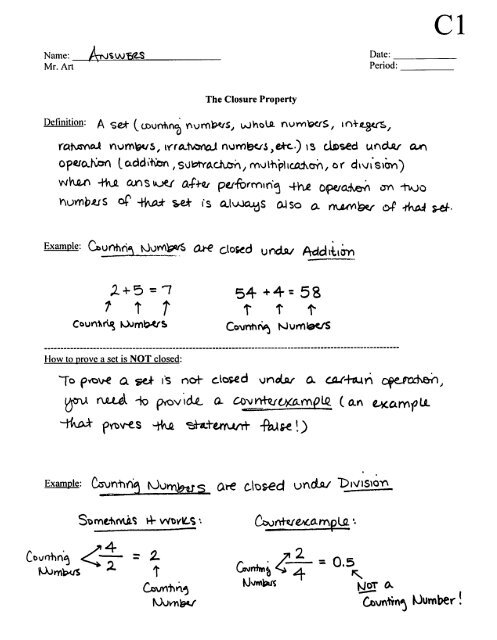 C1
Name: ANSWERS Date:
Mr. Art Period:
The Closure Property
Definition: A set (counting numbers, whole numbers, integers,
rational numbers, irrational numbers, etc.) is closed under an
operation (addition, subtraction, multiplication, or division)
when the answer after performing the operation on two
numbers of that set is always also a member of that set.
Example: Counting Numbers are closed under Addition
2+5=7 54+4=58
Counting Numbers Counting Numbers
How to prove a set is NOT closed:
To prove a set is not closed under a certain operation,
you need to provide a counterexample (an example
that proves the statement false!)
Example: Counting Numbers are closed under Division
Sometimes it works: Counterexample:
Counting Numbers 4/2 = 2 Counting Numbers 2/4 = 0.5
Counting Number NOT a Counting Number!